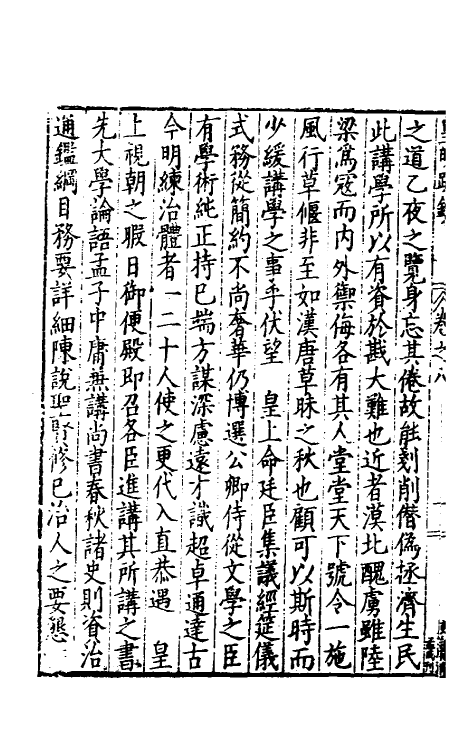 皇明疏鈔 卷之八
之道乙夜之覽身忘其倦故能剗削僭偽拯濟生民
此講學所以有資於戡大難也近者漠北醜虜雖陸
梁爲寇而内外禦侮各有其人堂堂天下號令一施
風行草偃非至如漢唐草昧之秋也顧可以斯時而
少緩講學之事乎伏望 皇上命廷臣集議經筵儀
式務從簡約不尚奢華仍博選公卿侍從文學之臣
有學術純正持已端方謀深慮遠才識超卓通達古
今明練治體者一二十人使之更代入直恭遇 皇
上視朝之暇日御便殿即召各臣進講其所講之書
先大學論語孟子中庸兼講尚書春秋諸史則資治
通鑑綱目務要詳細陳說聖賢修已治人之要懇